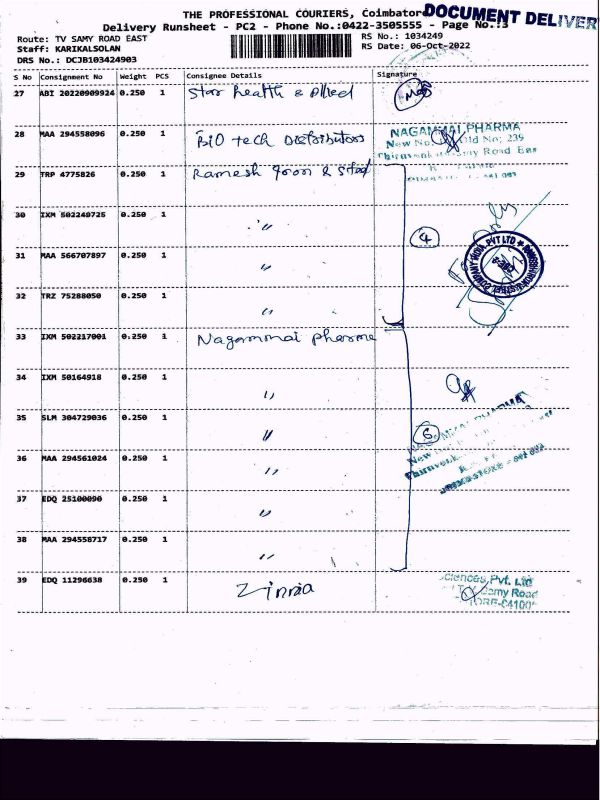 THE PROFESSIONAL COURIERS, Coimbator
DOCUMENT DELIVER
Delivery Runsheet - PC2 - Phone No.:0422-3505555 - Page No.:3
Route: TV SAMY ROAD EAST
RS No.: 1034249
Staff: KARIKALSOLAN
RS Date: 06-Oct-2022
DRS No.: DCJB103424903
S No Consignment No Weight PCS Consignee Details Signature
27 ABI 20220909924 0.250 1 Star health & Allied
28 MAA 294558096 0.250 1 BiO tech Distributors
NAGAMMAI PHARMA
New No. Old No; 239
Road Eas
29 TRP 4775826 0.250 1 Ramesh Iron & Steel
30 IXM 502249725 0.250 1 "
4
31 MAA 566707897 0.250 1 "
32 TRZ 75288050 0.250 1 "
33 IXM 502217001 0.250 1 Nagammai pharma
34 IXM 50164918 0.250 1 "
35 SLM 304729036 0.250 1 "
6
PHARMA
New
36 MAA 294561024 0.250 1 "
37 EDQ 25100090 0.250 1 "
38 MAA 294558717 0.250 1 "
39 EDQ 11296638 0.250 1 Zinnia
ciences Pvt. Ltd
amy Road